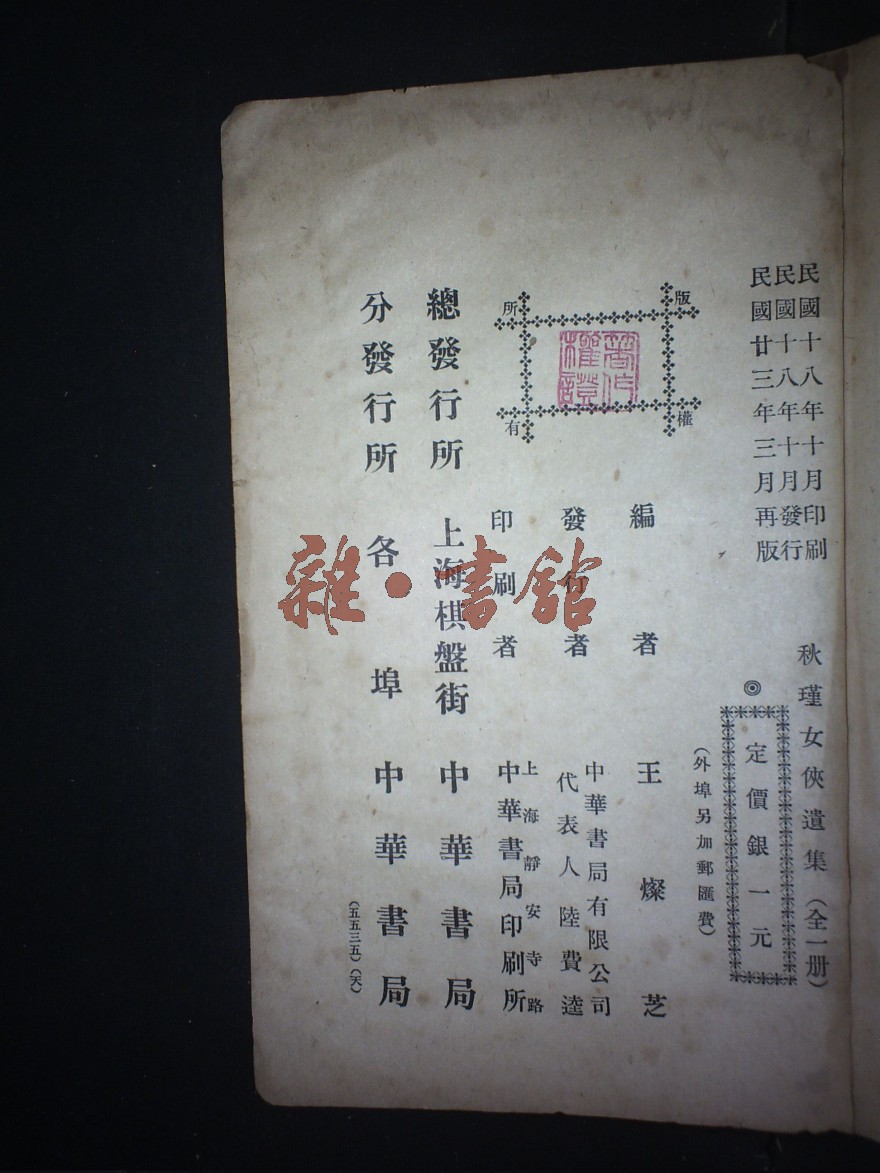 民國十八年十月印刷
民國十八年十月發行
民國廿三年三月再版
秋瑾女俠遺集（全一册）
◎
定價銀一元
（外埠另加郵匯費）
版權所有
著作權證
編者 王燦芝
發行者 中華書局有限公司
代表人陸費逵
印刷者 上海靜安寺路
中華書局印刷所
總發行所 上海棋盤街 中華書局
分發行所 各埠 中華書局
（五五三五）（天）
雜·書館